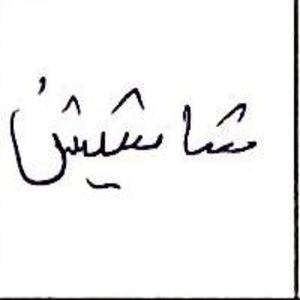 شاشيش